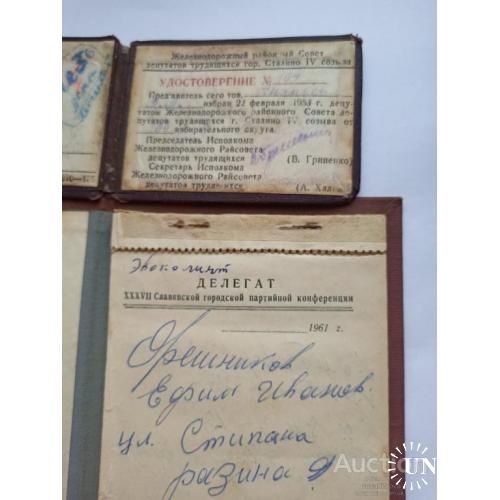 Железнодорожный районный Совет
депутатов трудящихся гор. Сталино IV созыва
УДОСТОВЕРЕНИЕ № 104
Пред'явитель сего тов.
избран 22 февраля 1953 г. депу-
татом Железнодорожного районного Совета де-
путатов трудящихся г. Сталино IV созыва от
избирательного округа.
Председатель Исполкома
Железнодорожного Райсовета
депутатов трудящихся (В. Гриненко)
Секретарь Исполкома
Железнодорожного Райсовета
депутатов трудящихся (А.
ДЕЛЕГАТ
XXXVII Славянской городской партийной конференции
1961 г.
Орешников
Ефим Иванов.
ул. Стипана
разина
UN